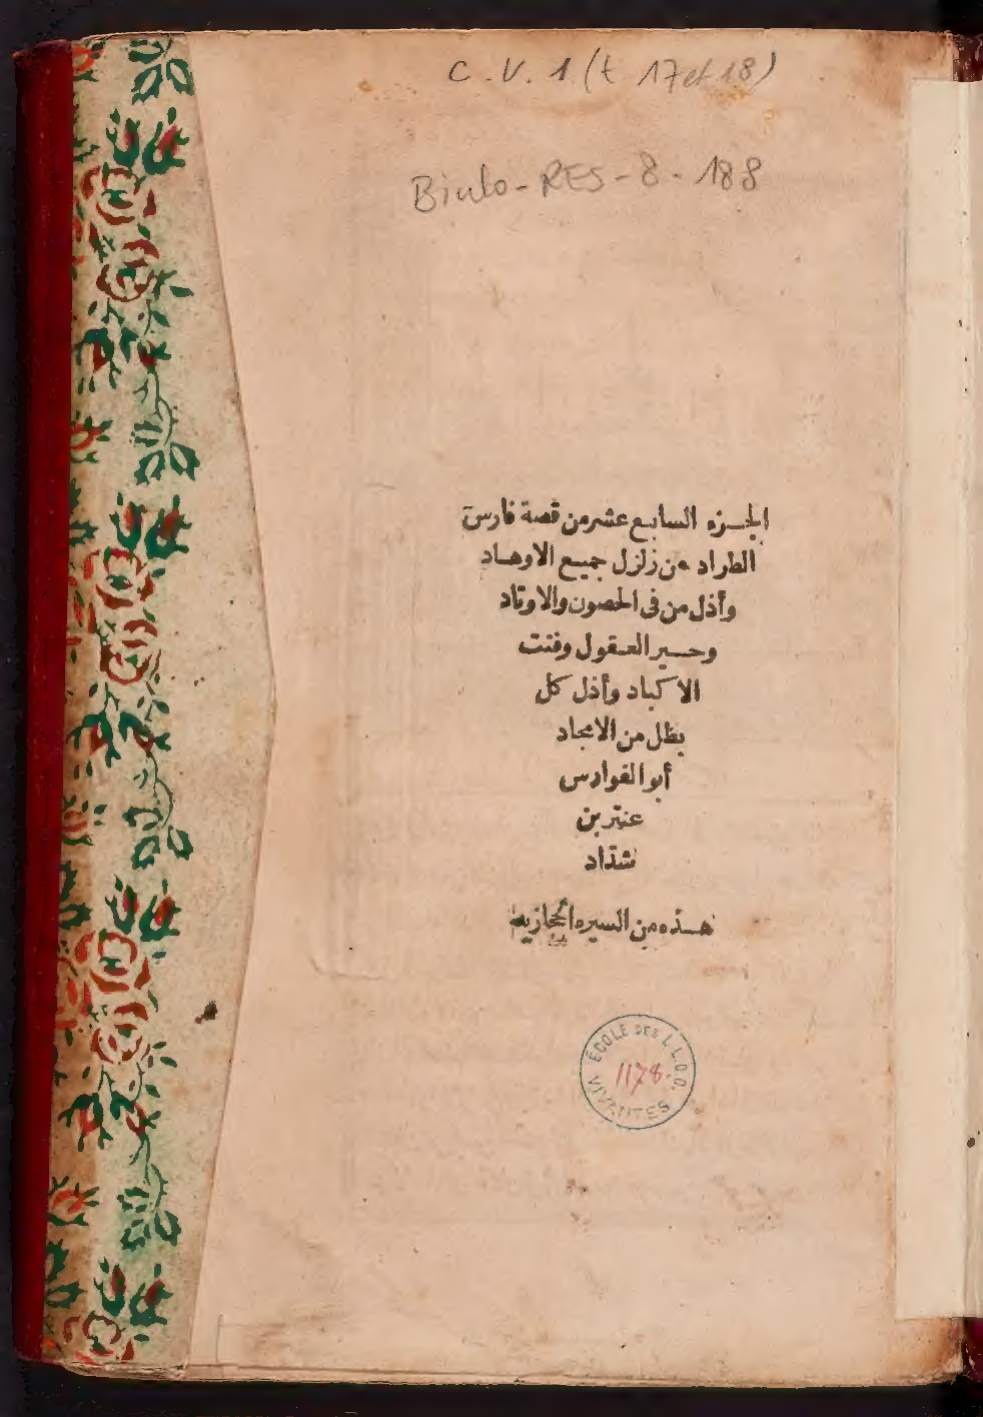 C.V.1 (t 17 et 18)
Biulo-RES-8-188
الجزء السابع عشر من قصة فارس
الطراد من زلزل جميع الاوهاد
وأذل من فى الحصون والاوتاد
وحير العقول وفتت
الاكباد وأذل كل
بطل من الامجاد
أبو الفوارس
عنتر بن
شداد
هذه من السيره الحجازيه
ÉCOLE DES L.L.O.O. VIVANTES
1178.